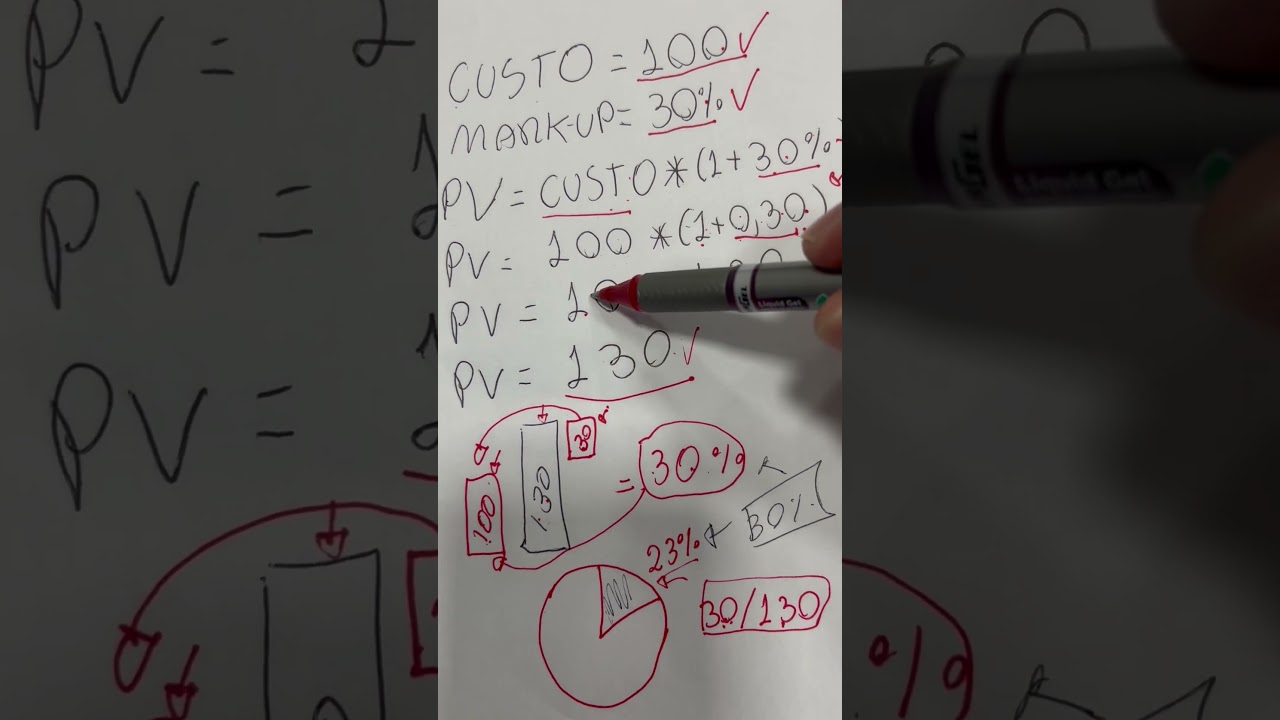 CUSTO = 100
MARK-UP = 30%
PV = CUSTO * (1 + 30%
PV = 100 * (1 + 0,30)
PV = 10
PV = 130
100
130
30
= 30%
30%
23%
30/130
Liquid Gel